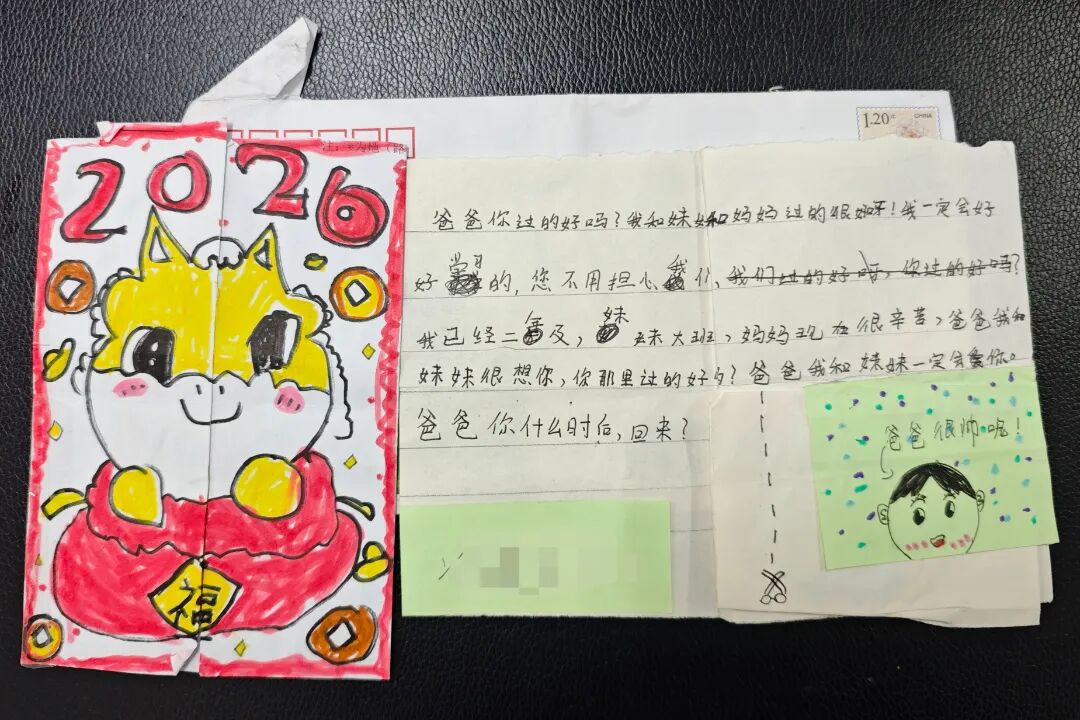 2026
福
注：
1.20元
CHINA
爸爸你过的好吗？我和妹妹和妈妈过的很好呀！我一定会好
好学习的，您不用担心我们，我们过的好呀，你过的好吗？
我已经二年及，妹妹大班，妈妈现在很辛苦，爸爸我和
妹妹很想你，你那里过的好夕？爸爸我和妹妹一定会爱你。
爸爸你什么时后，回来？
爸爸很帅呢！